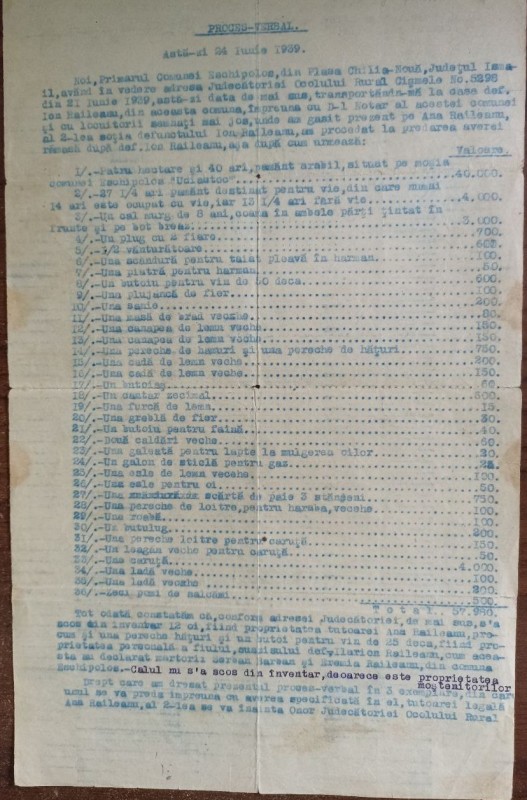 PROCES-VERBAL.
Astă-zi 24 Iunie 1939.
Noi, Primarul Comunei Eschipolos, din Plasa Chilia-Nouă, Județul Isma-
il, având în vedere adresa Judecătoriei Ocolului Rural Cișmele No. 8298
din 21 Iunie 1939, astă-zi data de mai sus, transportându-mă la casa def.
Ion Raileanu, din aceasta comuna, împreuna cu D-l Notar al acestei comunei
și cu locuitorii semnați mai jos, unde am gasit present pe Ana Raileanu,
al 2-lea soția defunctului Ion Raileanu, am procedat la predarea averei
rămasă după def. Ion Raileanu, așa după cum urmează:
Valoare.
1/.-Patru hectare și 40 ari, pământ arabil, situat pe moșia
comunei Eschipolos ........ 40.000.
2/.-27 1/4 ari pământ destinat pentru vie, din care numai
14 ari este ocupat cu vie, iar 13 1/4 ari fără vie ........ 4.000.
3/.-Un cal murg de 8 ani, coama în ambele părți țintat în
frunte și pe bot breaz ........ 3.000.
4/.-Un plug cu 2 fiare ........ 700.
5/.-1/2 vânturătoare ........ 600.
6/.-Una scândură pentru taiat pleavă în harman ........ 100.
7/.-Una piatră pentru harman ........ 50.
8/.-Un butoiu pentru vin de 50 deca ........ 600.
9/.-Una plujancă de fier ........ 100.
10/.-Una sanie ........ 200.
11/.-Una masă de brad veche ........ 80.
12/.-Una canapea de lemn veche ........ 150.
13/.-Una canapea de lemn veche ........ 150.
14/.-Una pereche de hamuri și una pereche de hățuri ........ 750.
15/.-Una cadă de lemn veche ........ 300.
16/.-Una cadă de lemn veche ........ 150.
17/.-Un butoiaș ........ 60.
18/.-Un cantar zecimal ........ 500.
19/.-Una furcă de lemn ........ 15.
20/.-Una greblă de fier ........ 30.
21/.-Un butoiu pentru faină ........ 40.
22/.-Două caldări veche ........ 60.
23/.-Una galeată pentru lapte la mulgerea oilor ........ 20.
24/.-Un galon de sticlă pentru gaz ........ 25.
25/.-Una esle de lemn veche ........ 100.
26/.-Una esle pentru oi ........ 50.
27/.-Una scârtă de paie 3 stânjeni ........ 750.
28/.-Una pereche de loitre, pentru haraba, veche ........ 100.
29/.-Una ........ 100.
30/.-Un butulug ........ 200.
31/.-Una pereche loitre pentru caruță ........ 150.
32/.-Un leagăn veche pentru caruță ........ 50.
33/.-Una caruță ........ 4.000.
34/.-Una ladă veche ........ 100.
35/.-Una ladă veche ........ 200.
36/.-Zeci pomi de salcâmi ........ 500.
Total
Tot odată constatăm că, conform adresei Judecătoriei, de mai sus, s'a
scos din inventar 12 oi, fiind proprietatea tutoarei Ana Raileanu, pre-
cum și una pereche hățuri și un butoi pentru vin de 25 deca, fiind pro-
prietatea personală a fiului, Ilarion Raileanu, cum aceas-
ta au declarat martorii și Eremia Raileanu, din comuna
Eschipolos.-Calul nu s'a scos din inventar, deoarece este proprietatea
mostenitorilor
Drept care am dresat prezentul proces-verbal în 3 exemplare, din care
unul se va preda împreuna cu averea specificată în el, tutoarei legală
Ana Raileanu, al 2-lea se va înainta Onor Judecătoriei Ocolului Rural